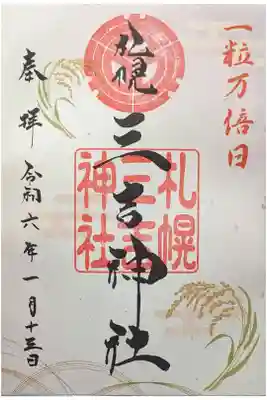 一粒万倍日
札幌
三吉神社
札幌
三吉
神社
奉拝
令和六年一月十三日